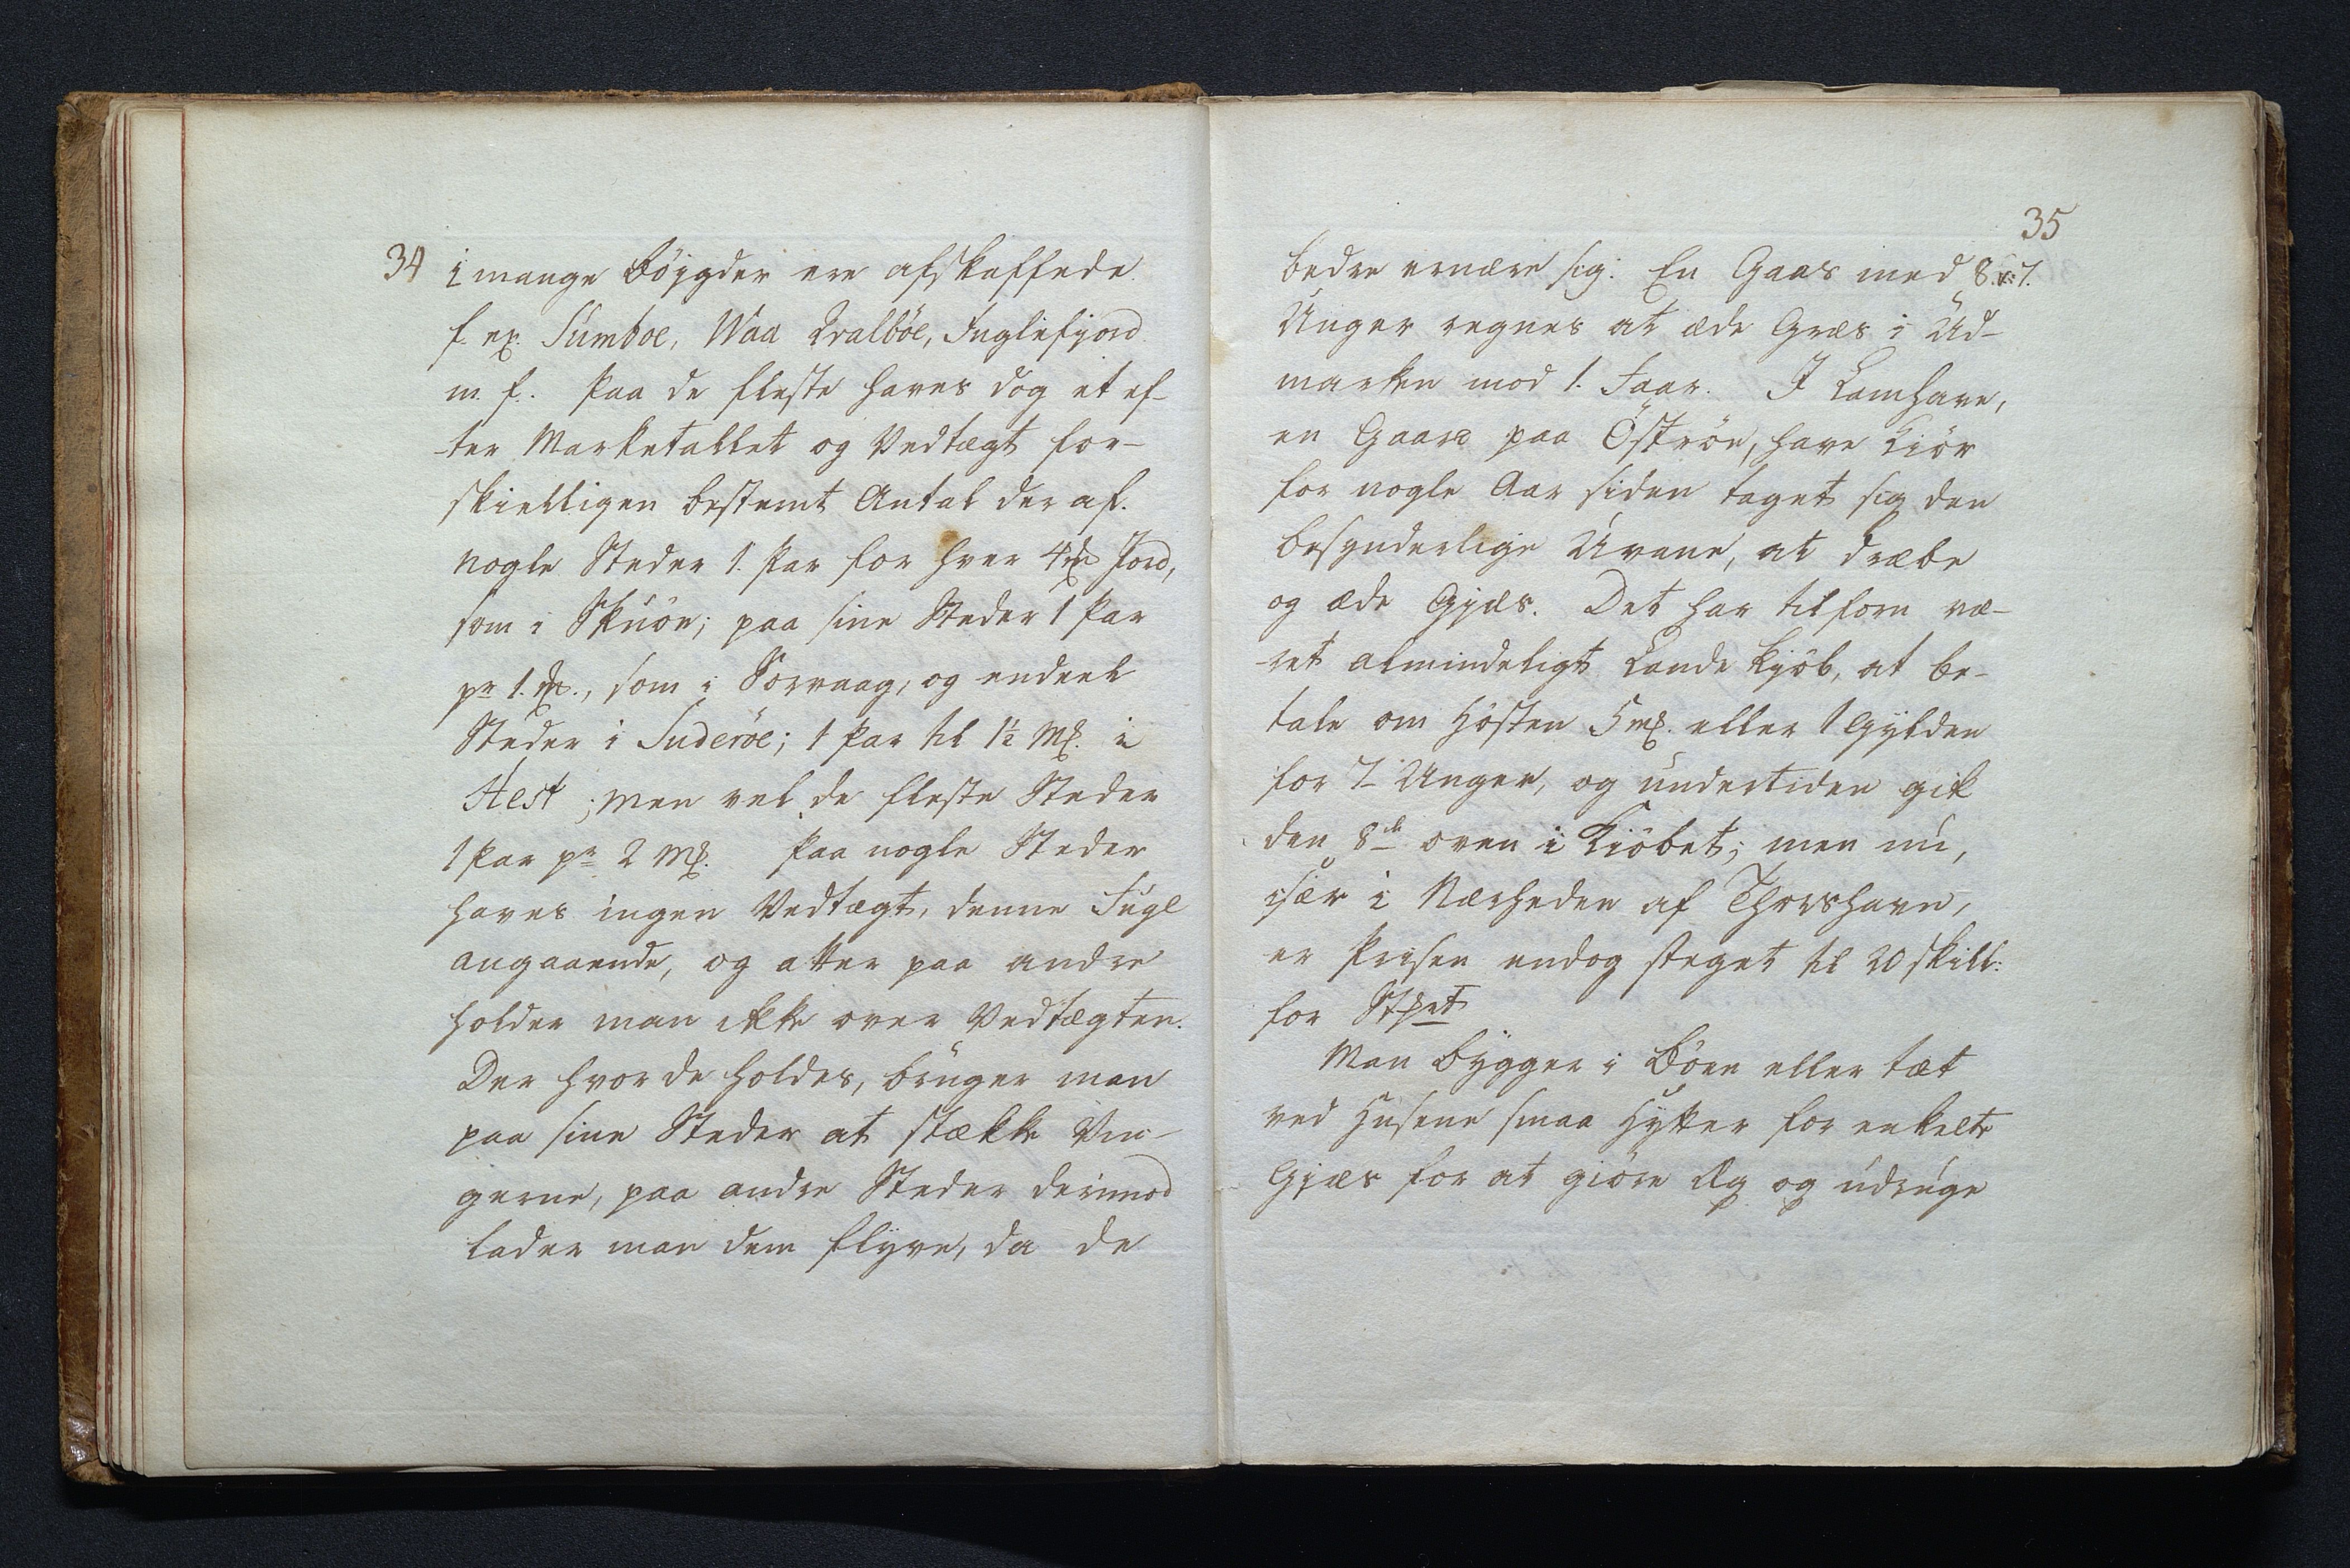 34
i mange Böygder ere afskaffede
f. ex. Sumboe, Waa Qvalböe, Fuglefjord
m. f. Paa de fleste haves dog et ef-
ter Marketallet og Vedtægt for-
skielligen bestemt Antal deraf.
nogle Steder 1. Par for hver 4 Jord,
som i Skuöe; paa sine Steder 1 Par
pr 1., som i Sorvaag, og endeel
Steder i Suderöe; 1 Par til 1½ Mk. i
Hest; men vel de fleste Steder
1 Par pr 2 Mk. Paa nogle Steder
haves ingen Vedtægt, denne Fugl
angaaende, og atter paa andre
holder man ikke over Vedtægten.
Der hvor de holdes, bruger man
paa sine Steder at stække Vin-
gerne, paa andre Steder derimod
lader man dem flyve, da de
35
bedre ernære sig. En Gaas med 8. a 7.
Unger regnes at æde Græs i Ud-
marken mod 1. Faar. I Lamhave,
en Gaard paa Öströe, have Kiör
for nogle Aar siden taget sig den
besynderlige Uvane, at dræbe
og æde Gjæs. Det har tilforn væ-
ret almindeligt Lande Kjöb, at be-
tale om Hösten 5 mk. eller 1 Gylden
for 7 Unger, og undertiden gik
den 8de oven i Kiöbet; men nu,
især i Nærheden af Thorshavn,
er Prisen endog steget til 20 skill:
for Stket
Man bygger i Böen eller tæt
ved Husene smaa Hytter for enkelte
Gjæs for at giöre Æg og udruge